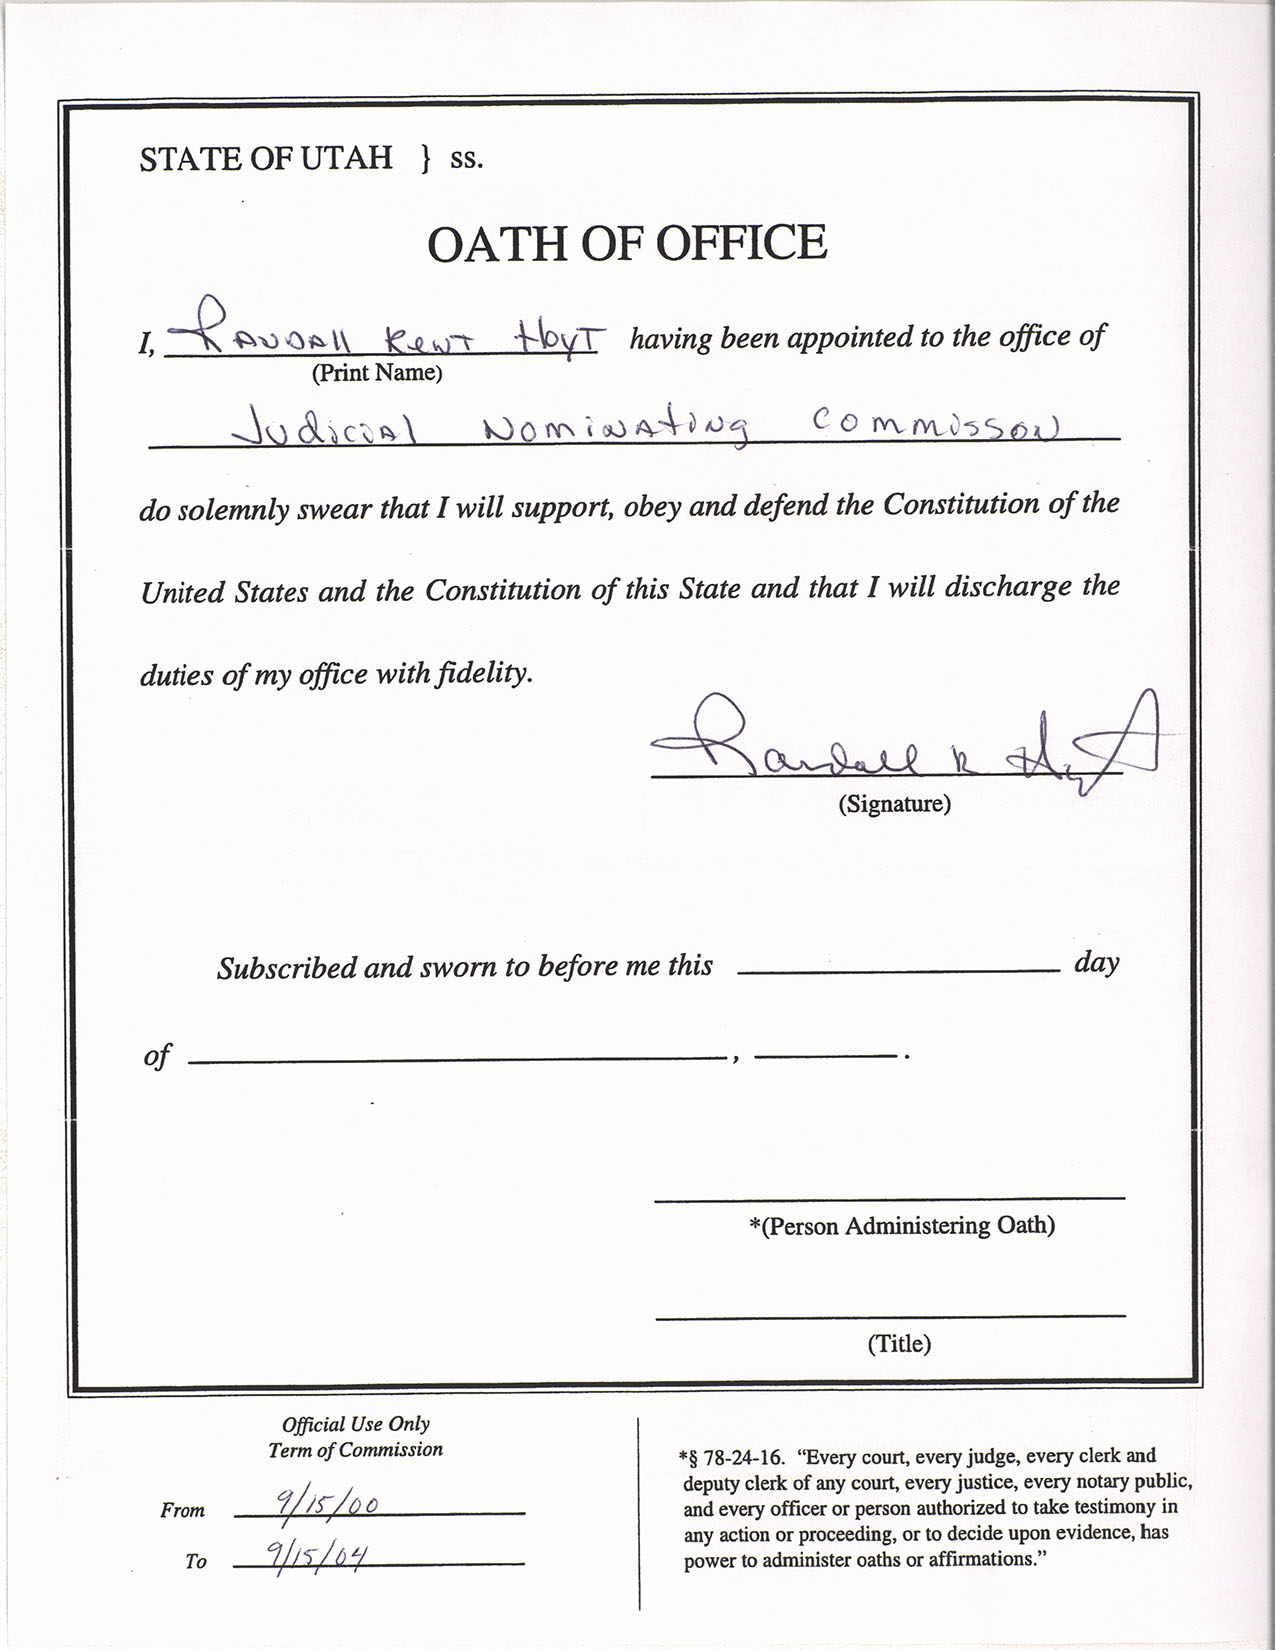 STATE OF UTAH } ss.
OATH OF OFFICE
I, Randall Kent Hoyt having been appointed to the office of
(Print Name)
Judicial Nominating Commisson
do solemnly swear that I will support, obey and defend the Constitution of the
United States and the Constitution of this State and that I will discharge the
duties of my office with fidelity.
Randall K Hoyt
(Signature)
Subscribed and sworn to before me this ____________ day
of ____________, ______.
*(Person Administering Oath)
(Title)
Official Use Only
Term of Commission
From 9/15/00
To 9/15/04
*§ 78-24-16. “Every court, every judge, every clerk and
deputy clerk of any court, every justice, every notary public,
and every officer or person authorized to take testimony in
any action or proceeding, or to decide upon evidence, has
power to administer oaths or affirmations.”